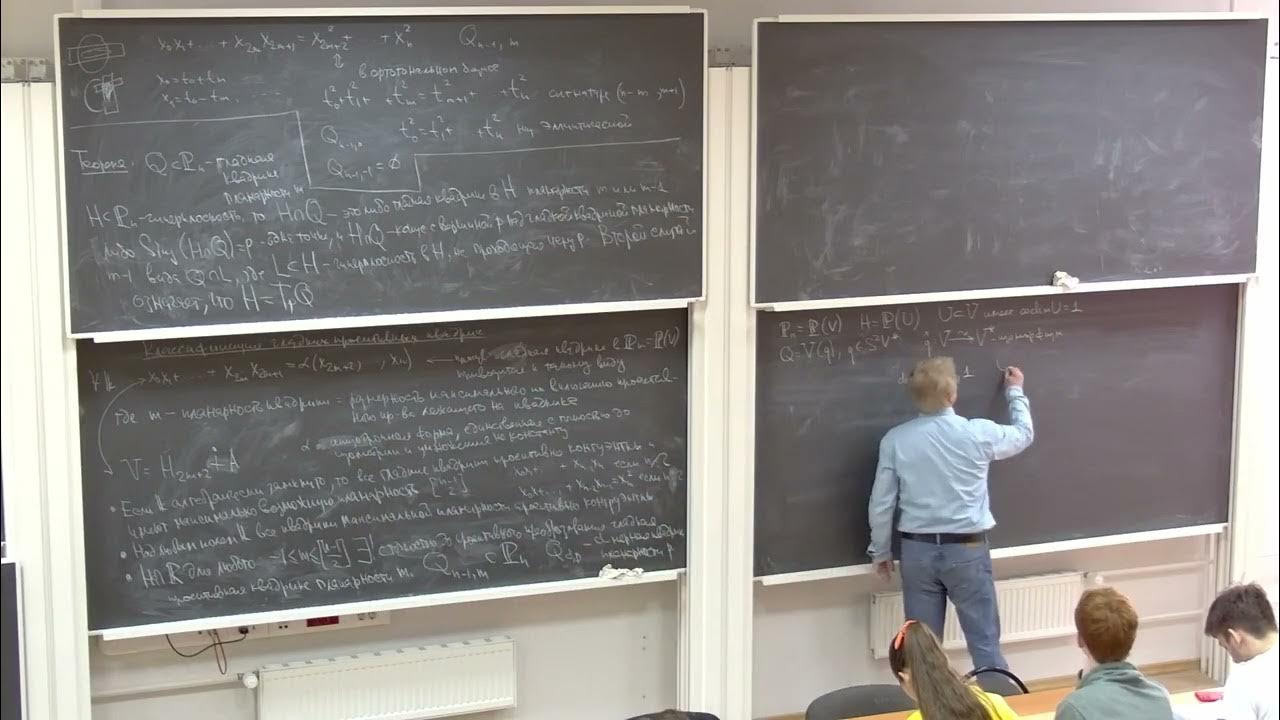 x₀x₁+ … + x₂ₘx₂ₘ₊₁ = x²₂ₘ₊₂ + … + xₙ² Qₙ₋₁,ₘ
в ортогональном базисе
x₀ = t₀+tₙ
x₁ = t₀-tₙ, …
t₀²+t₁²+ … +tₘ² = t²ₘ₊₁+ … +tₙ² сигнатуре (n-m, m+1)
Qₙ₋₁,₀ t₀² = t₁²+ … +tₙ²
Qₙ₋₁,₋₁ = ∅
Теорема. Q⊂ℙₙ - гладкая
квадрика
планарности m
H⊂ℙₙ - гиперплоскость, то H∩Q - это либо гладкая квадрика в H планарности m или m-1
либо Sing(H∩Q)=p - одна точка, и H∩Q - конус с вершиной p над гладкой квадрикой планарности
m-1 вида Q∩L, где L⊂H - гиперплоскость в H, не проходящая через p. Второй случай
означает, что H = TₚQ
Классификация гладких проективных квадрик
∀ 𝕜 x₀x₁+ … + x₂ₘx₂ₘ₊₁ = α(x₂ₘ₊₂, …, xₙ) ← гладкая квадрика в ℙₙ=ℙ(V)
приводится к такому виду
где m - планарность квадрики = размерность максимального по включению проектив-
ного пр-ва лежащего на квадрике
α - анизотропная форма, единственная с точностью до
изометрии и умножения на константу
V = H₂ₘ₊₂ ∔ A
• Если 𝕜 алгебраически замкнуто, то все гладкие квадрики проективно конгруэнтны и
имеют максимально возможную планарность [(n-1)/2]
• Над любым полем 𝕜 все квадрики максимальной планарности проективно конгруэнтны
• Над ℝ для любого -1≤m≤[(n-1)/2] ∃! с точностью до проективного преобразования гладкая
проективная квадрика планарности m. Qₙ₋₁,ₘ ⊂ ℙₙ
ℙₙ=ℙ(V) H=ℙ(U) U⊂V имеет codim U=1
Q=V(q), q∈S²V* q̂: V ⥲ V*
1